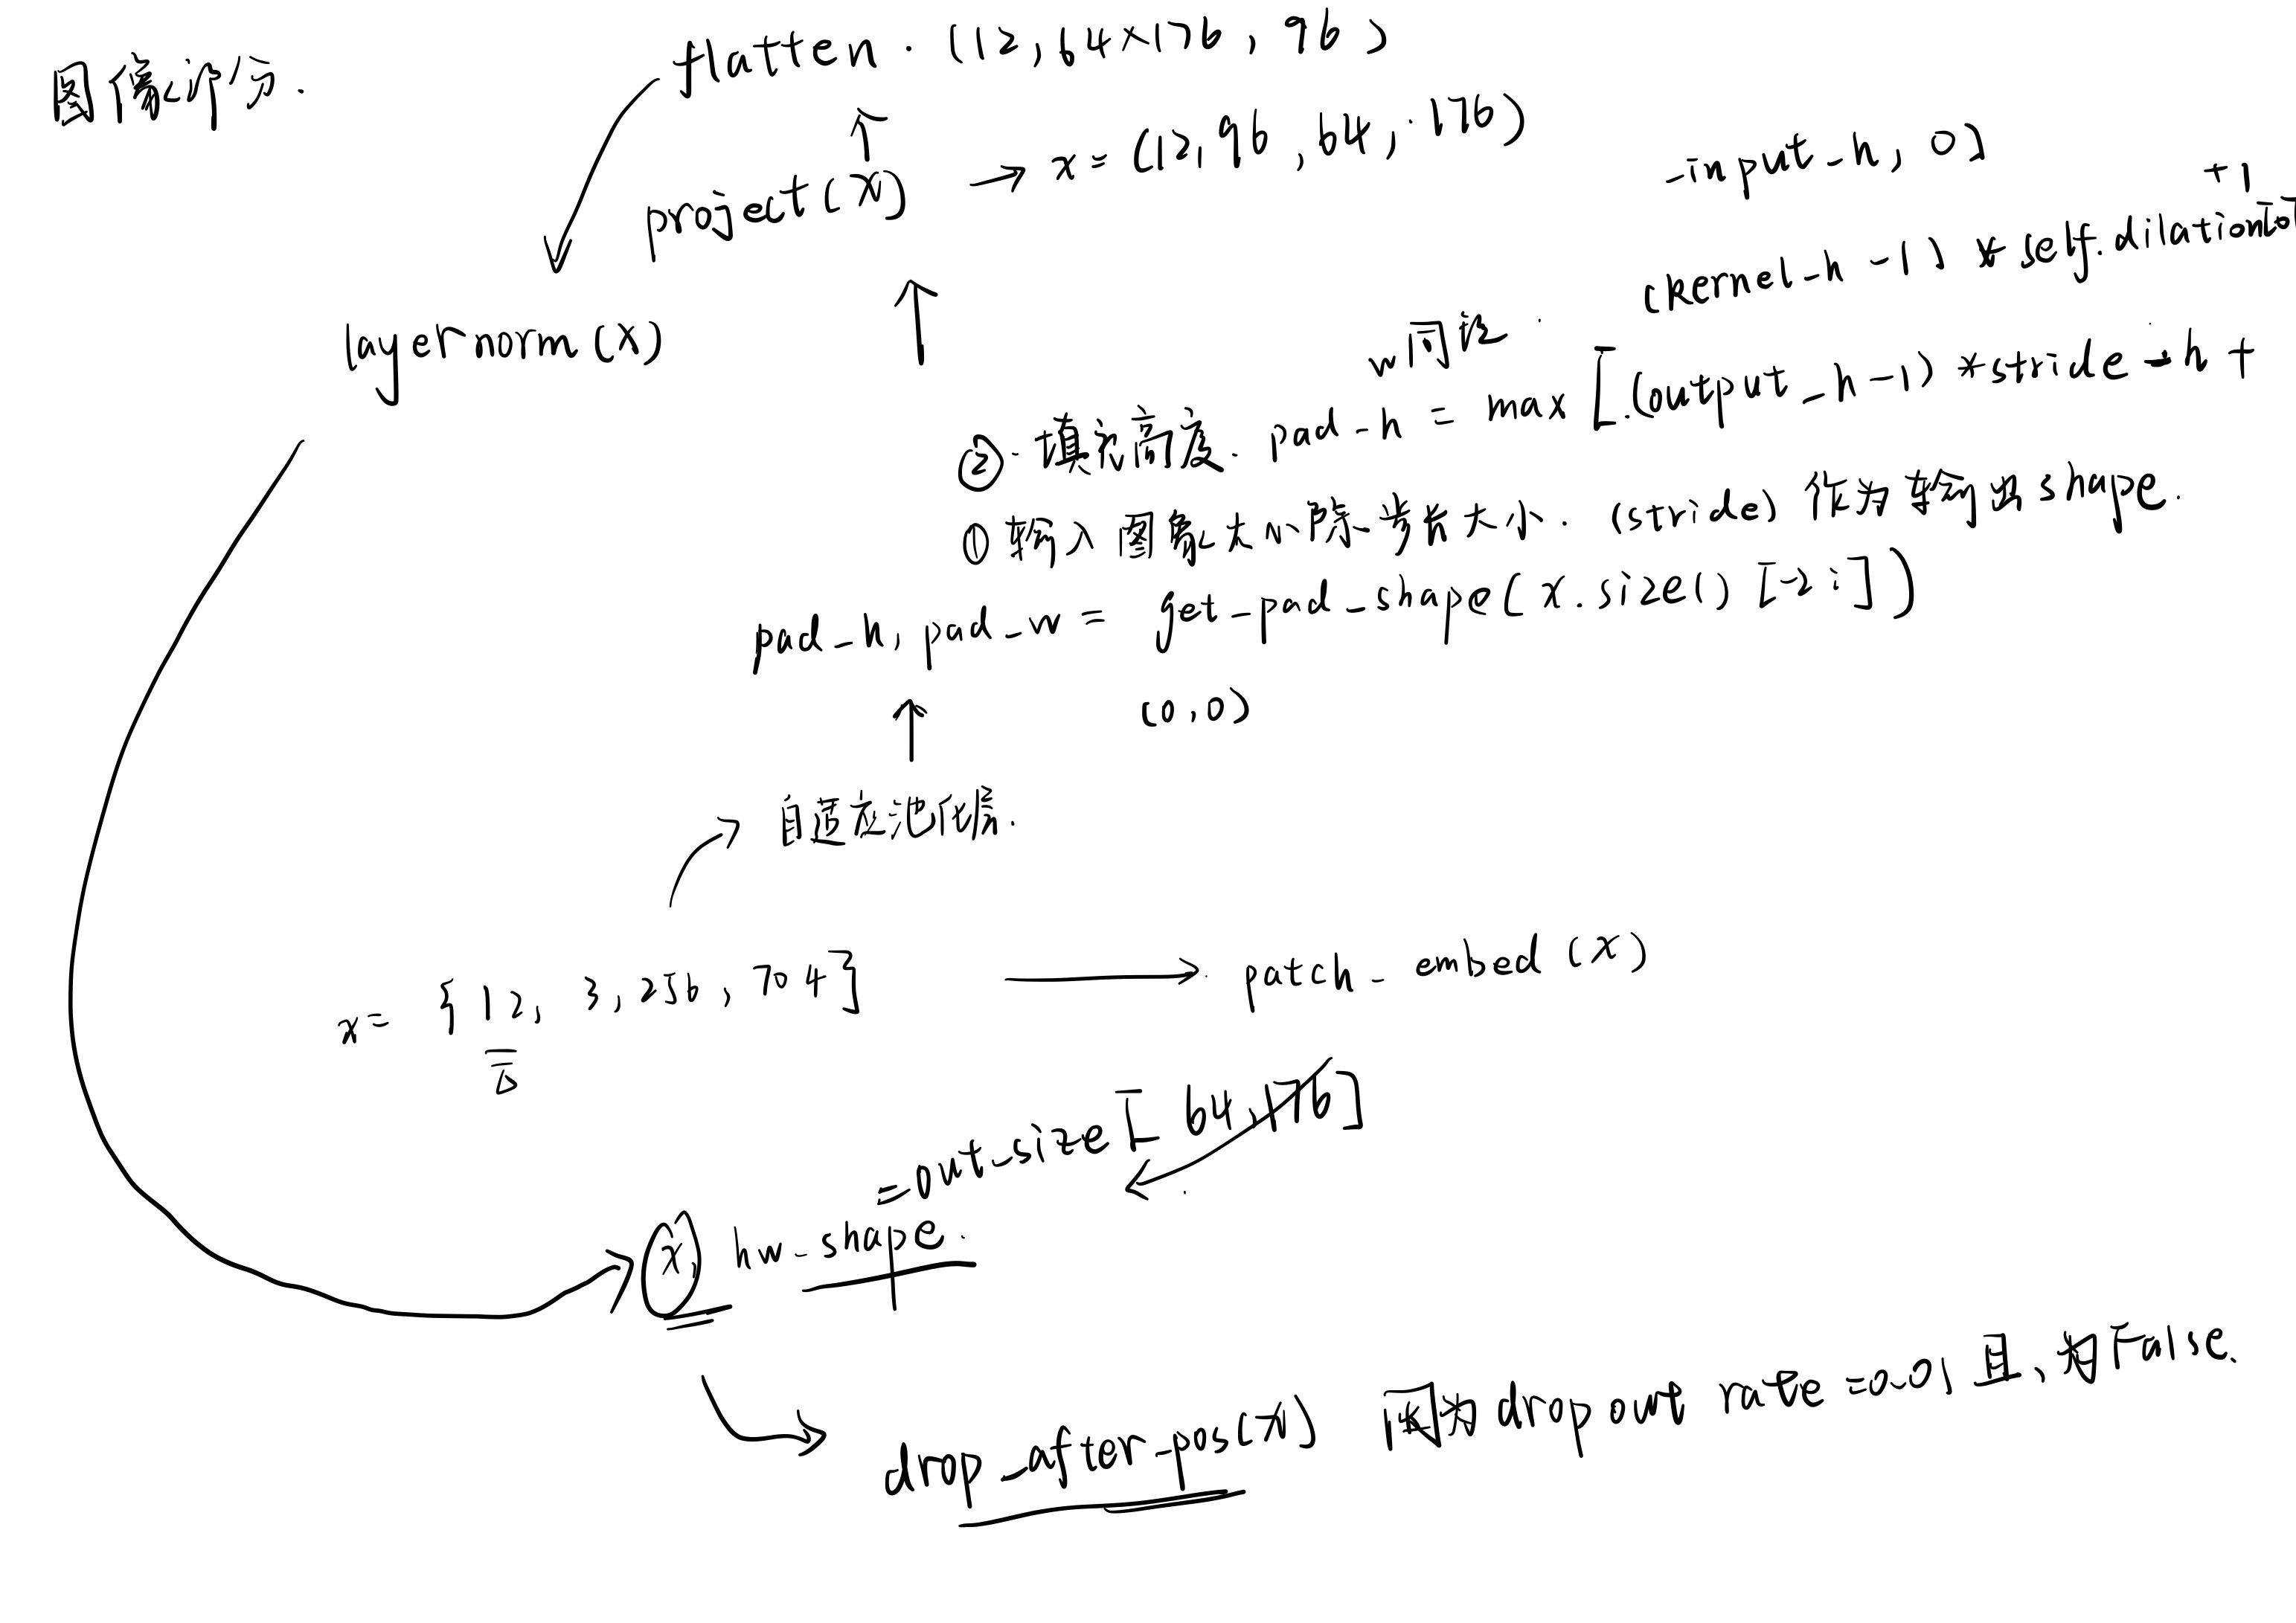 图像部分.
flatten. (12, 64×176, 96)
project(x) → x = (12, 96, 64, 176)
layernorm(x)
-input-h, 0)
+1
(kernel-h-1) * self.dilation[0]
w同理.
② 填充高度. pad-h = max [(output-h-1) * stride-h +
① 输入图像大小除步长大小. (stride) 作为输出shape.
pad-h, pad-w = get-pad-shape(x.size()[-2:])
(0,0)
自适应池化层.
x = {12, 3, 256, 704] → patch-embed(x)
= out-size[64, 176]
x, hw-shape.
drop-after-pos(x) dropout rate = 0.0, 且 为False.